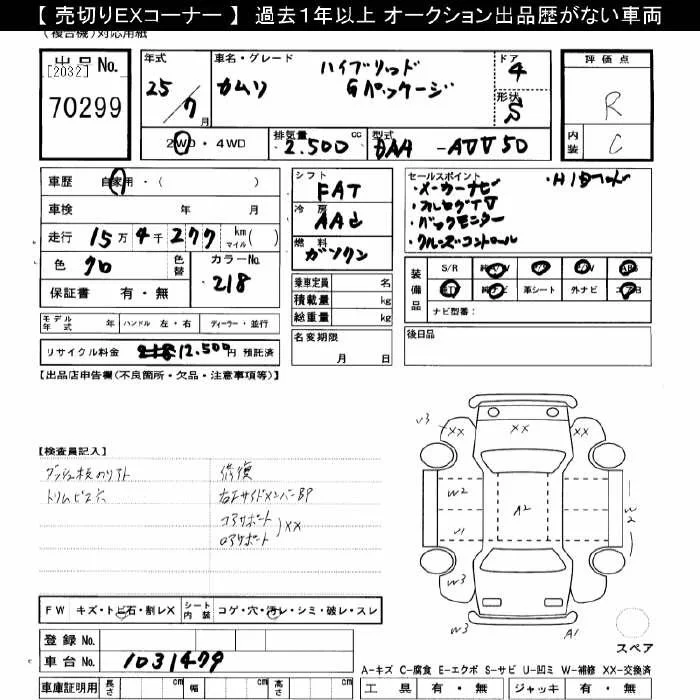 【 売切りEXコーナー 】 過去１年以上 オークション出品歴がない車両
(複合機)対応用紙
出品 No.
[2032]
70299
年式
25/7月
車名・グレード
カムリ ハイブリッド
Gパッケージ
ドア
4
形状
S
2WD・4WD
排気量 cc
2.500
型式
DAA -AVV50
評価点
R
内装
C
車歴 自家用・( )
車検 年 月
走行 15万4千277 km( ) マイル
色 クロ 色替 カラーNo. 218
保証書 有・無
シフト
FAT
冷房
AAC
燃料
ガソリン
乗車定員 名
積載量 kg
総重量 kg
セールスポイント
・メーカーナビ
・フルセグTV
・バックモニター
・クルーズコントロール
装備品
S/R 純AW P/S P/W AB
純TV 純ナビ 革シート 外ナビ エアB
ナビ型番：
モデル年式 年 ハンドル 左・右 ディーラー・並行
名変期限
月 日
後日品
リサイクル料金 12.500円 預託済
【出品店申告欄(不良箇所・欠品・注意事項等)】
【検査員記入】
トリムビス穴
修復
右Fサイドメンバー BP
コアサポート
ロアサポート
XX
V3
XX
XX
XX
W2
A2
V1
W2
W3
W3
A1
スペア
FW キズ・トビ石・割レX シート内装 コゲ・穴・汚レ・シミ・破レ・スレ
登録 No.
車台 No. 1031479
車庫証明用 長さ cm 幅 cm 高さ cm
A－キズ C－腐食 E－エクボ S－サビ U－凹ミ W－補修 XX－交換済
工具 有・無 ジャッキ 有・無